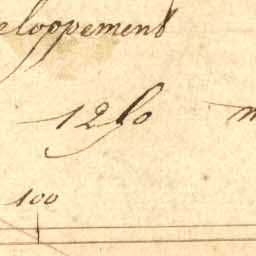 eloppement
1250 m
100